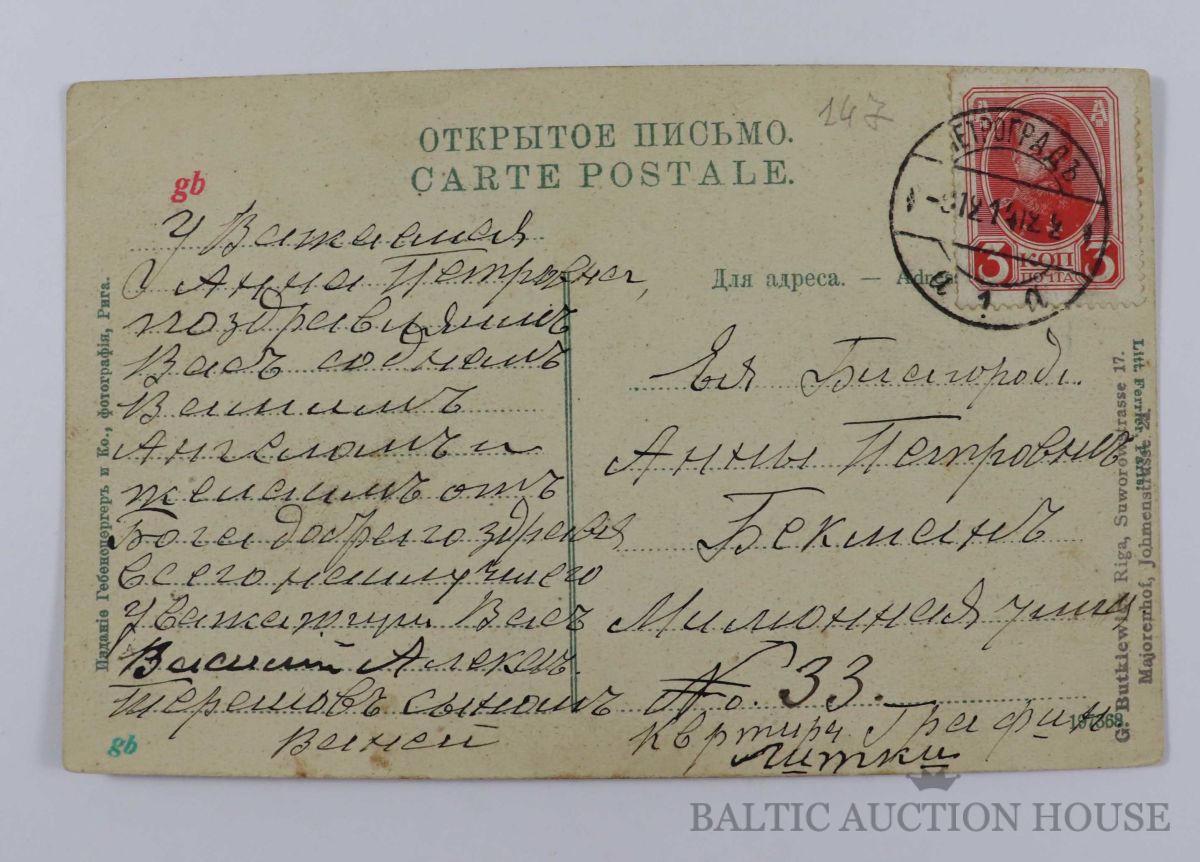 147
ОТКРЫТОЕ ПИСЬМО.
CARTE POSTALE.
gb
ПЕТРОГРАДЪ
А А
3 КОП 3
ПОЧТА
Для адреса. —
Уважаемая
Анна Петровна,
поздравляимъ
Васъ соднемъ
Вашимъ
Ангеломъ и
желаимъ отъ
Бога доброго здравія
всего наилучшего
Уважающи Васъ
Василий Алекса.
Терешовъ сыномъ
Ваней
Ея Благород.
Анны Петровнъ
Бекманъ
Милионная улица
No. 33.
Квртира Графини
Литки
Изданіе Гебенспергеръ и Ко., фотографія, Рига.
gb
G. Butkiewicz Riga, Suworowstrasse 17.
Majorenhof, Johmenstrasse
BALTIC AUCTION HOUSE